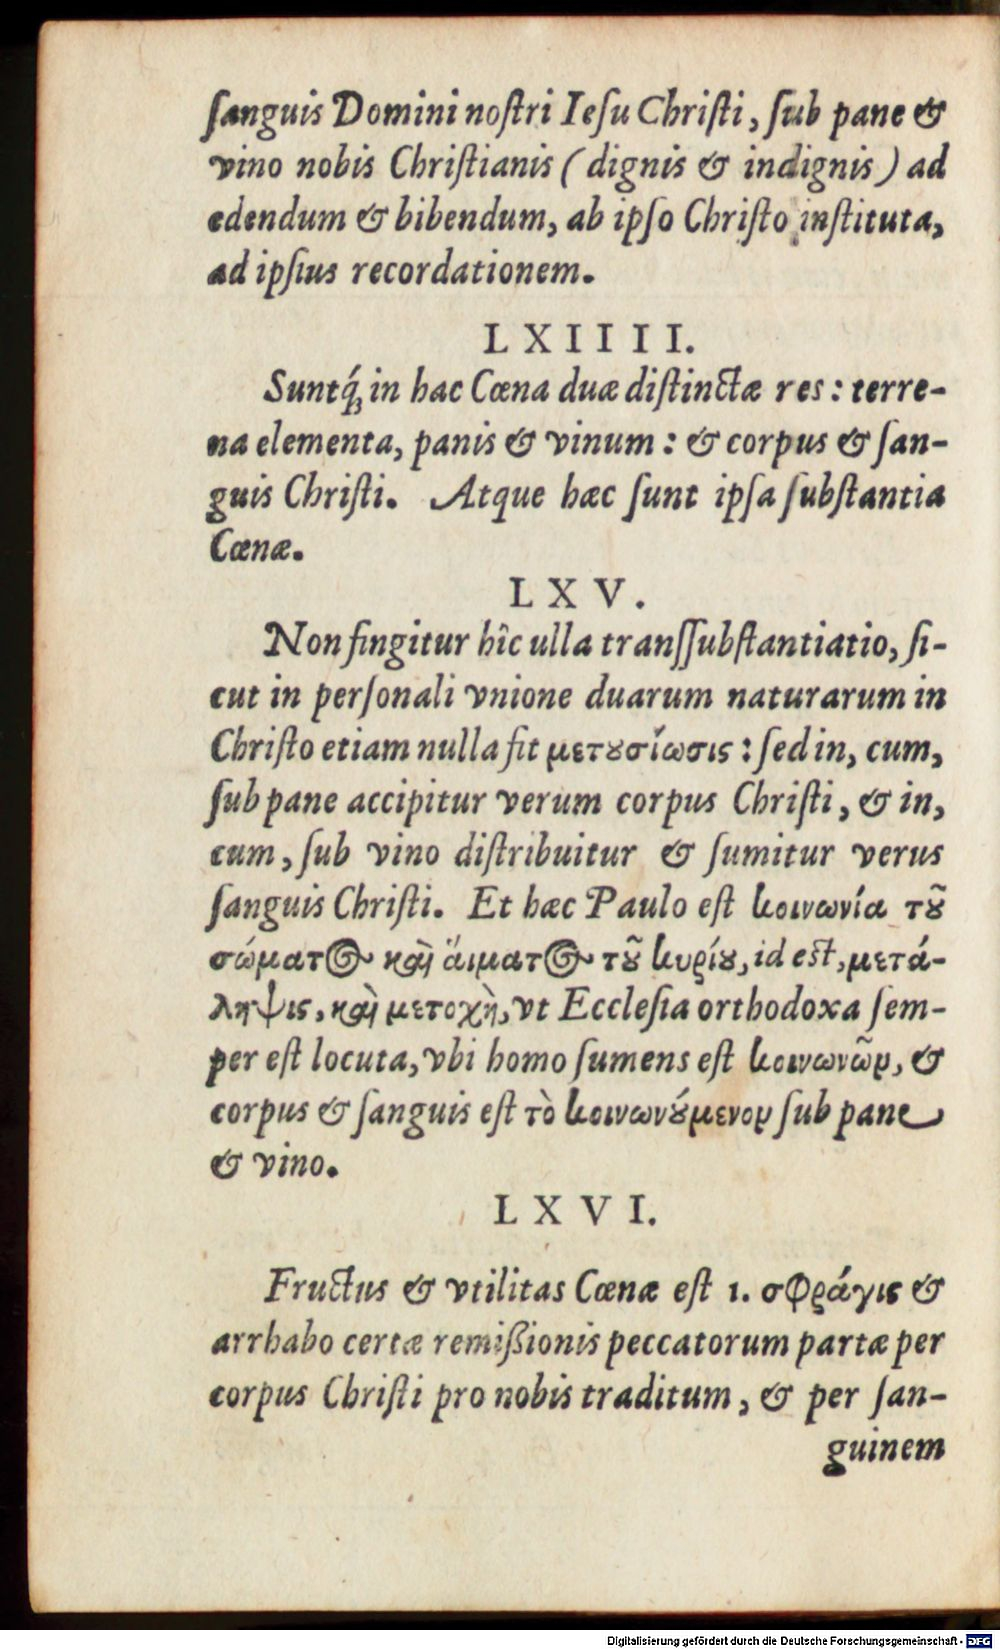 ſanguis Domini noſtri Ieſu Chriſti, ſub pane &
vino nobis Chriſtianis (dignis & indignis) ad
edendum & bibendum, ab ipſo Chriſto inſtituta,
ad ipſius recordationem.
LXIIII.
Suntq́; in hac Cœna duæ diſtinctæ res: terre-
na elementa, panis & vinum: & corpus & ſan-
guis Chriſti. Atque hæc ſunt ipſa ſubſtantia
Cœnæ.
LXV.
Non fingitur hîc ulla tranſſubſtantiatio, ſi-
cut in perſonali vnione duarum naturarum in
Chriſto etiam nulla fit μετȣσίωσις: ſed in, cum,
ſub pane accipitur verum corpus Chriſti, & in,
cum, ſub vino diſtribuitur & ſumitur verus
ſanguis Chriſti. Et hæc Paulo eſt κοινωνία τȣ͂
σώματος καὶ ἅιματος τȣ͂ κυρίȣ, id est, μετά-
ληψις, καὶ μετοχὴ, vt Eccleſia orthodoxa ſem-
per eſt locuta, vbi homo ſumens eſt κοινωνῶν, &
corpus & ſanguis eſt τὸ κοινωνȣ́μενον ſub pane
& vino.
LXVI.
Fructus & vtilitas Cœnæ eſt 1. σφράγις &
arrhabo certæ remiſsionis peccatorum partæ per
corpus Chriſti pro nobis traditum, & per ſan-
guinem
Digitalisierung gefördert durch die Deutsche Forschungsgemeinschaft - DFG